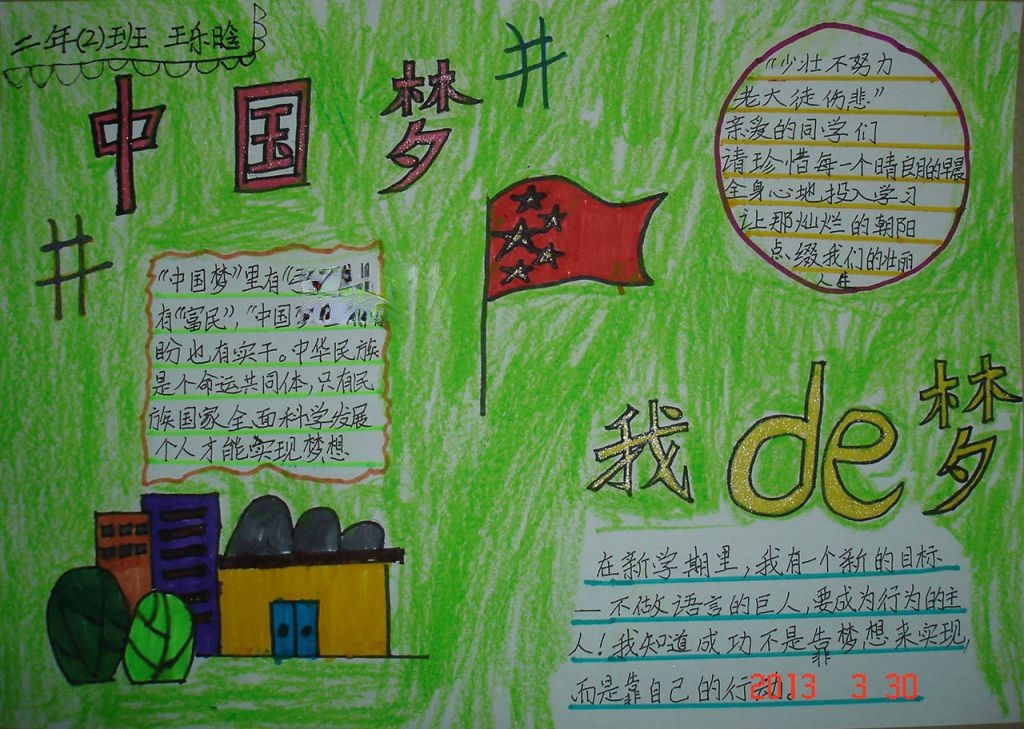 二年(2)班 王乐晗
中国梦
“少壮不努力
老大徒伤悲”
亲爱的同学们
请珍惜每一个晴良的早晨
全身心地投入学习
让那灿烂的朝阳
点缀我们的壮丽
人生
“中国梦”里有“
有“富民”,“中国
盼也有实干。中华民族
是个命运共同体,只有民
族国家全面科学发展
个人才能实现梦想
我de梦
在新学期里,我有一个新的目标
—不做语言的巨人,要成为行为的主
人!我知道成功不是靠梦想来实现,
靠
而是靠自己的行动。
2013 3 30